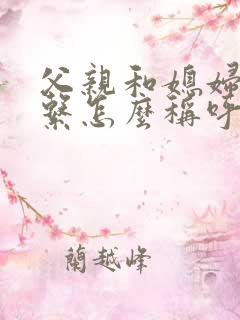 父親和媳婦
繫怎麼稱呼
蘭越峰